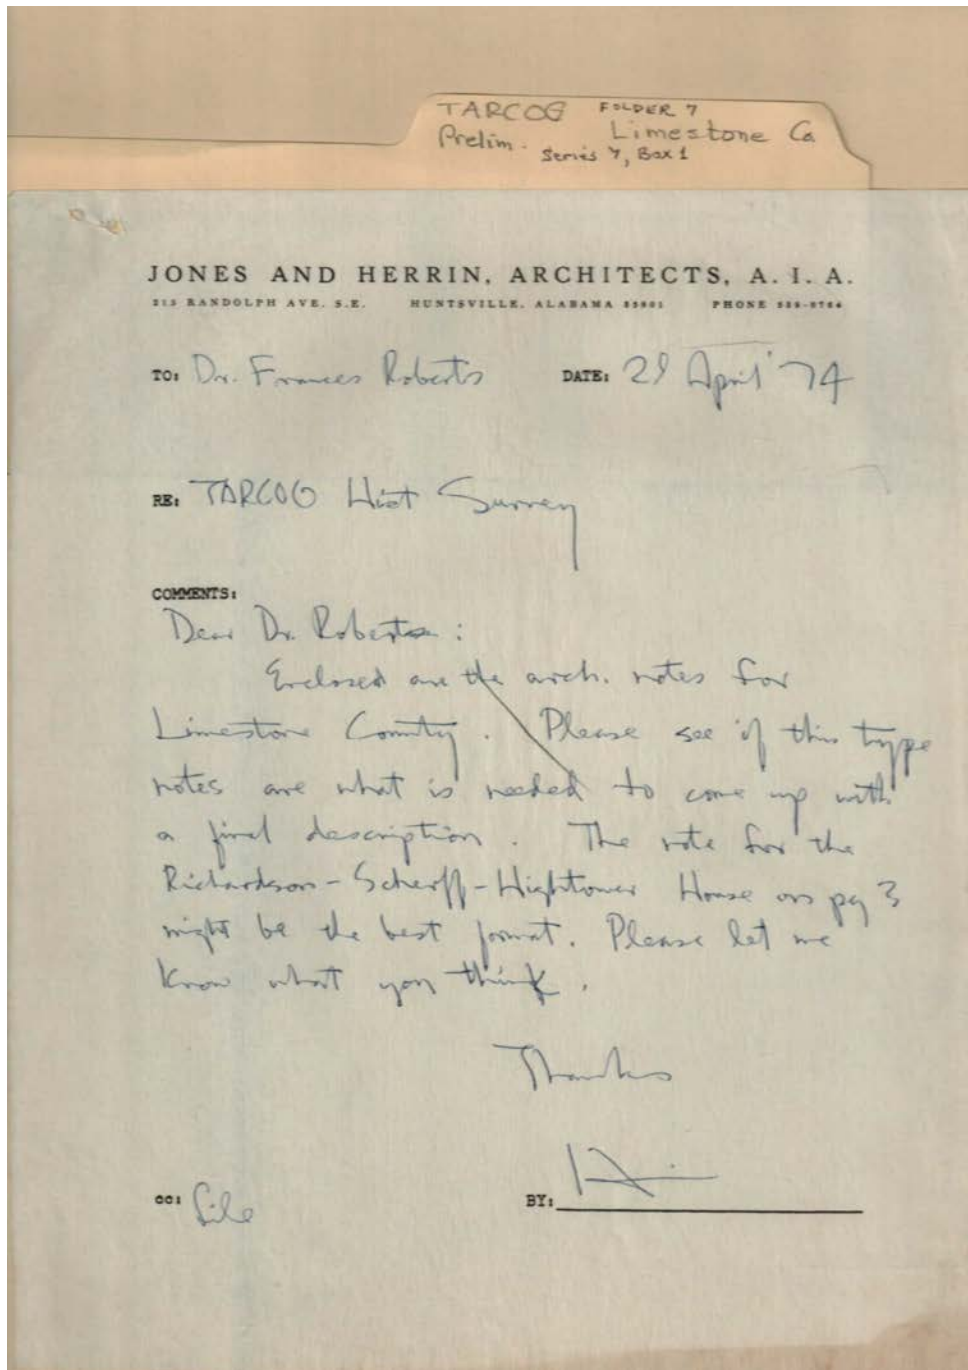 TARCOG FOLDER 7
Prelim. Limestone Co
Series 7, Box 1
JONES AND HERRIN, ARCHITECTS, A. I. A.
215 RANDOLPH AVE. S.E. HUNTSVILLE, ALABAMA 35801 PHONE
TO: Dr. Frances Roberts DATE: April '74
RE: TARCOG Hist Survey
COMMENTS:
Dear Dr. Roberts:
Enclosed are the arch. notes for
Limestone County. Please see if this type
notes are what is needed to come up with
a final description. The note for the
Richardson-Scherff-Hightower House on pg 3
might be the best format. Please let me
know what you think.
Thanks
CC: file BY: